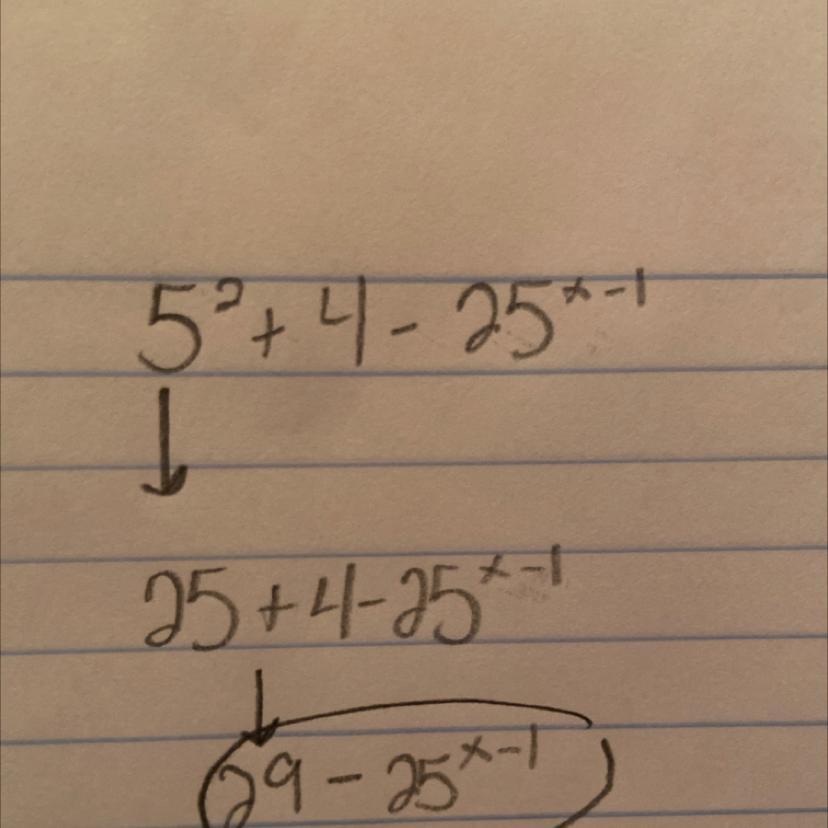 5² + 4 - 25ˣ⁻¹
25 + 4 - 25ˣ⁻¹
29 - 25ˣ⁻¹